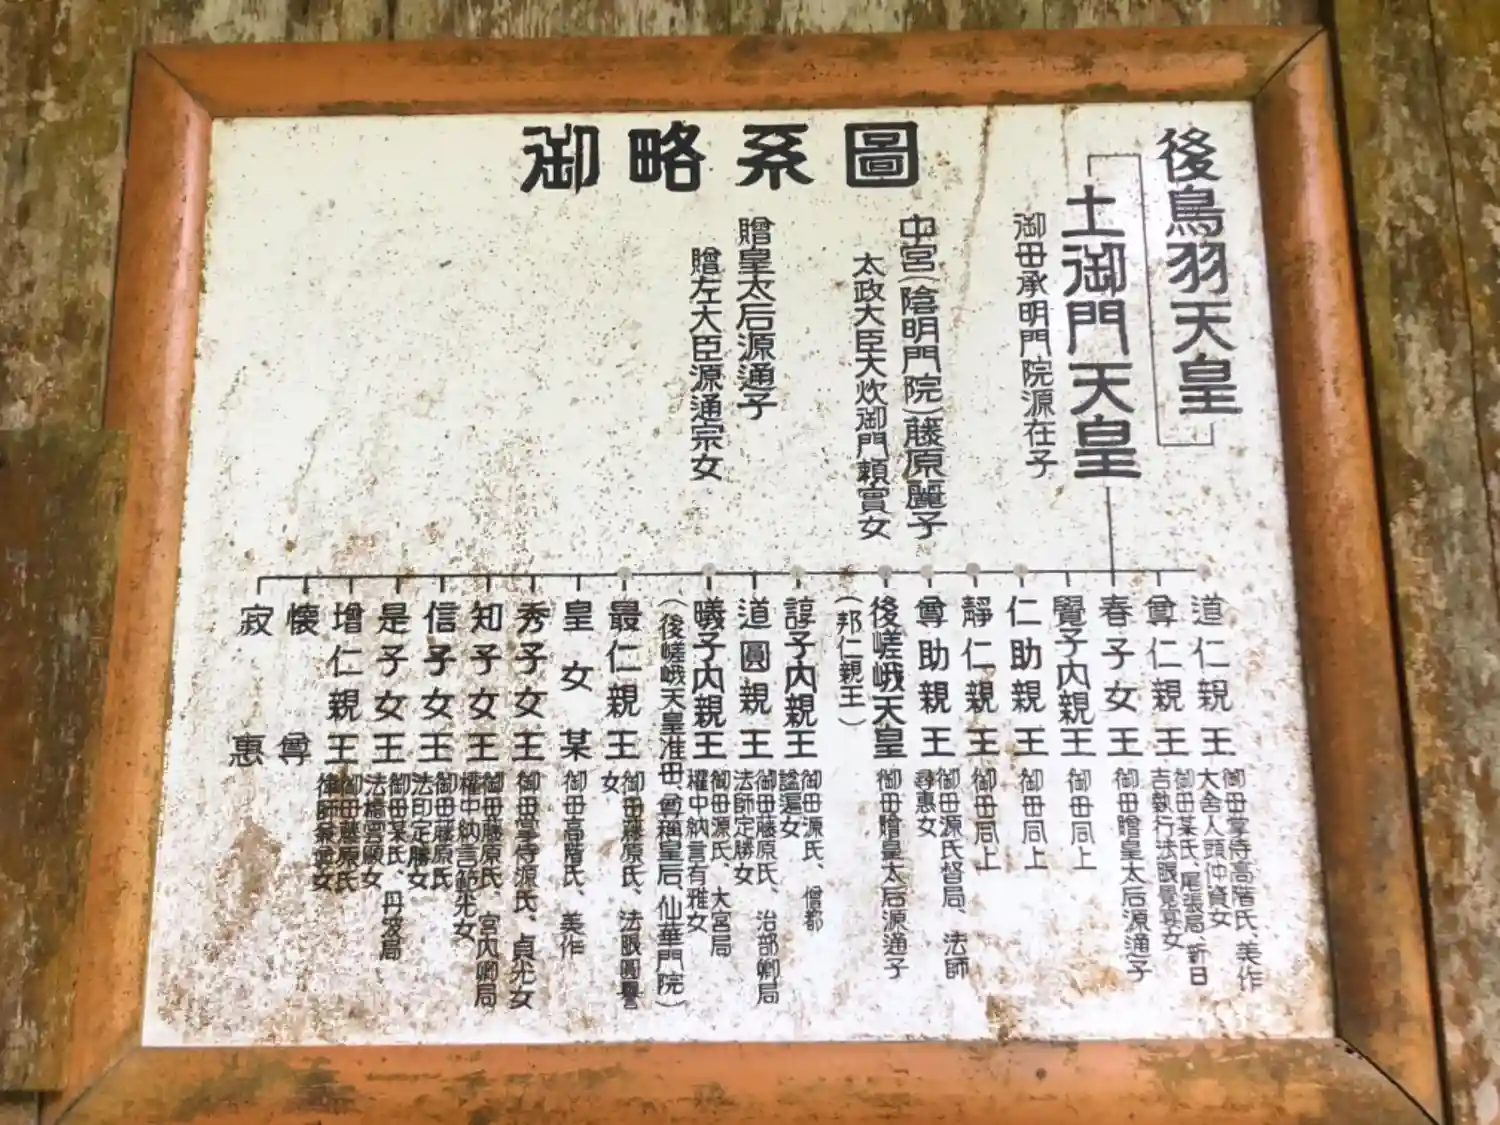 御略系圖
後鳥羽天皇
土御門天皇
御母承明門院源在子
中宮(陰明門院)藤原麗子
太政大臣大炊御門頼實女
贈皇太后源通子
贈左大臣源通宗女
道仁親王
御母掌侍高階氏、美作
大舎人頭仲資女
尊仁親王
御母某氏、尾張局、新日
吉執行法眼覺宴女
春子女王
御母贈皇太后源通子
覺子内親王
御母同上
仁助親王
御母同上
靜仁親王
御母同上
尊助親王
御母源氏督局、法師
尋惠女
後嵯峨天皇
御母贈皇太后源通子
(邦仁親王)
諄子内親王
御母源氏、僧都
諡遍女
道圓親王
御母藤原氏、治部卿局
法師定勝女
曦子内親王
御母源氏、大宮局
權中納言有雅女
(後嵯峨天皇准母、尊稱皇后、仙華門院)
最仁親王
御母藤原氏、法眼圓譽
女
皇女某
御母高階氏、美作
秀子女王
御母掌侍源氏、貞光女
知子女王
御母藤原氏、宮内卿局
權中納言範光女
信子女王
御母藤原氏
法印定勝女
是子女王
御母某氏、丹波局
法橋雲顯女
增仁親王
御母藤原氏
律師兼女
懐尊
寂惠